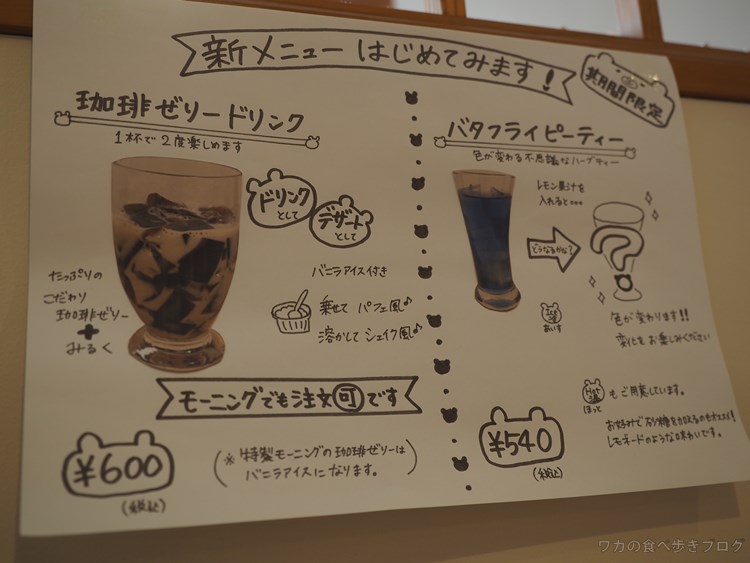 新メニューはじめてみます!
期間限定
珈琲ぜリードリンク
1杯で2度楽しめます
ドリンク
として
デザート
として
バニラアイス付き
乗せて パフェ風♪
溶かして シェイク風♪
たっぷりの
こだわり
珈琲ぜリー
+
みるく
モーニングでも注文可です
¥600
(税込)
(※特製モーニングの珈琲ぜリーは
バニラアイスになります。)
バタフライピーティー
色が変わる不思議なハーブティー
レモン果汁を
入れると…
どうなるかな?
?
あいす
色が変わります!!
変化をお楽しみください
ほっと
もご用意しています。
お好みで砂糖を加えるのもオススメ!
レモネードのような味わいです。
¥540
(税込)
ワカの食べ歩きブログ